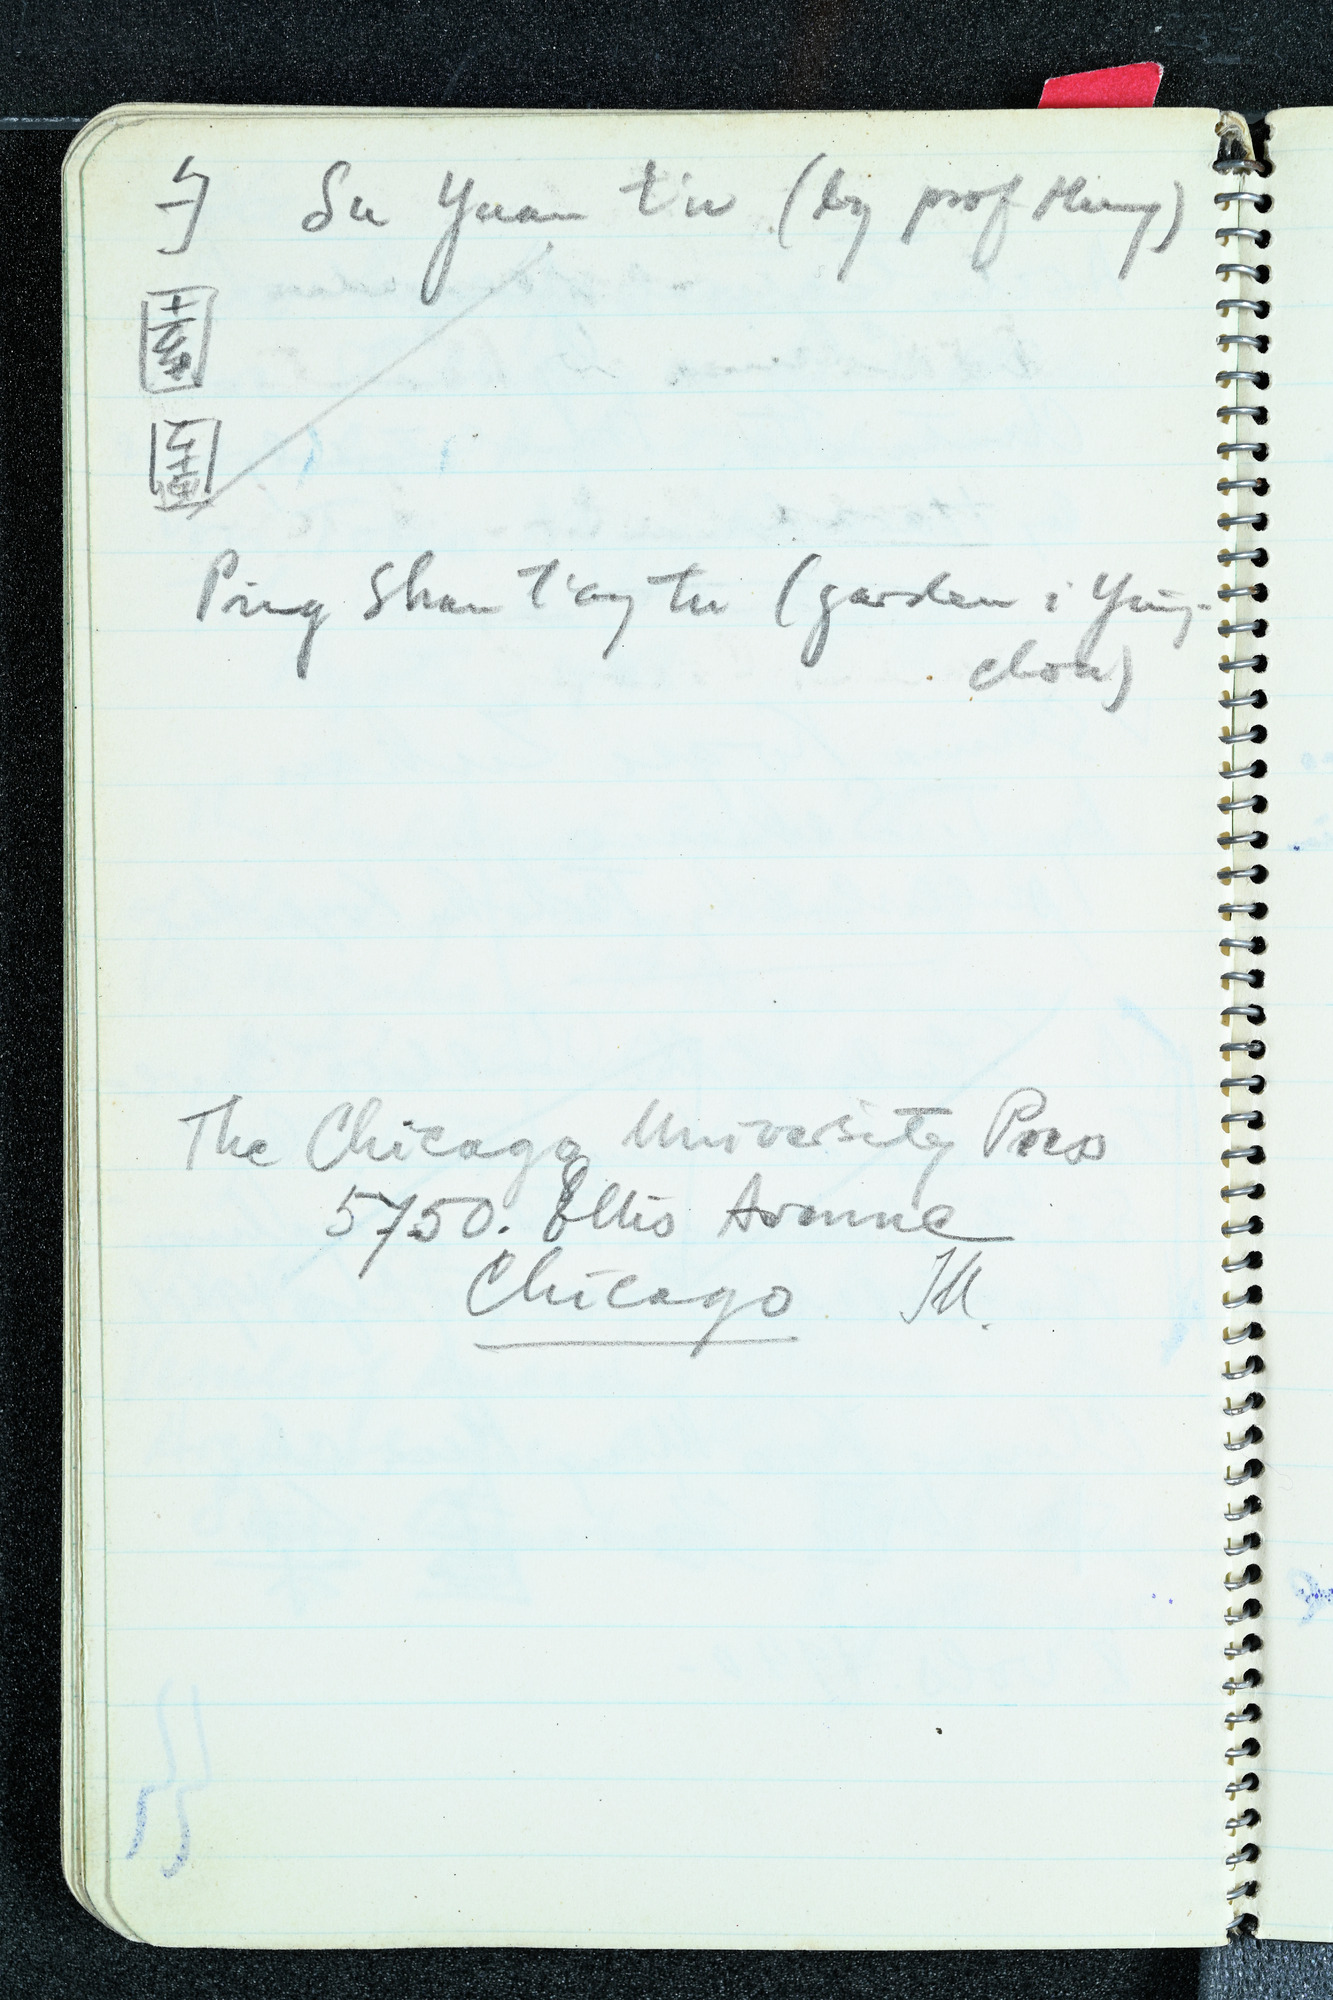 勺 Su Yuan t'u (by prof Hung)
園
圖
Ping Shan t'ang tu (garden i Yang-
chou)
The Chicago University Press
5750. Ellis Avenue
Chicago Ill.